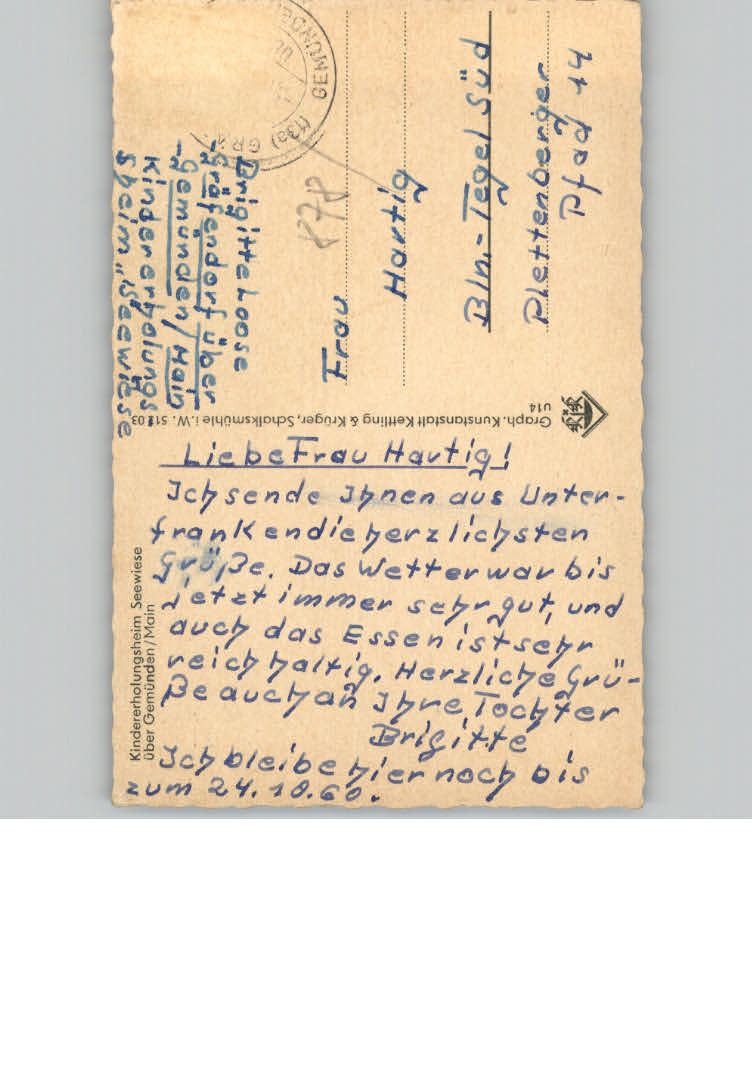 Liebe Frau Hartig!
Ich sende Ihnen aus Unter-
franken die herzlichsten
Grüße. Das Wetter war bis
jetzt immer sehr gut, und
auch das Essen ist sehr
reichhaltig. Herzliche Grü-
ße auch an Ihre Tochter
Brigitte
Ich bleibe hier noch bis
zum 24.10.60.
Kindererholungsheim Seewiese
über Gemünden/Main
Graph. Kunstanstalt Kettling & Krüger, Schalksmühle i.W. 511 03
U14
K&K
Brigitte Loose
Gräfendorf über
Gemünden/Main
Kindererholung
sheim „Seewiese
878
Frau
Hartig
Bln.-Tegel Süd
Plettenberger
Pfad 44
(13a)
GEMÜNDE